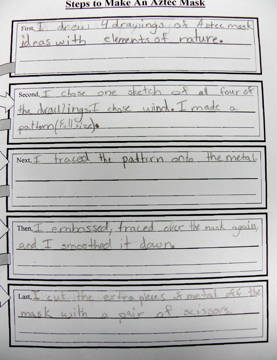 Steps to Make An Aztec Mask
First, I drew 4 drawings of Aztec mask
ideas with elements of nature.
Second, I chose one sketch of all four of
the drawings. I chose wind. I made a
pattern (full size).
Next, I traced the pattern onto the metal
Then, I embossed, traced over the mask again
and I smoothed it down.
Last, I cut the extra pieces of metal off the
mask with a pair of scissors